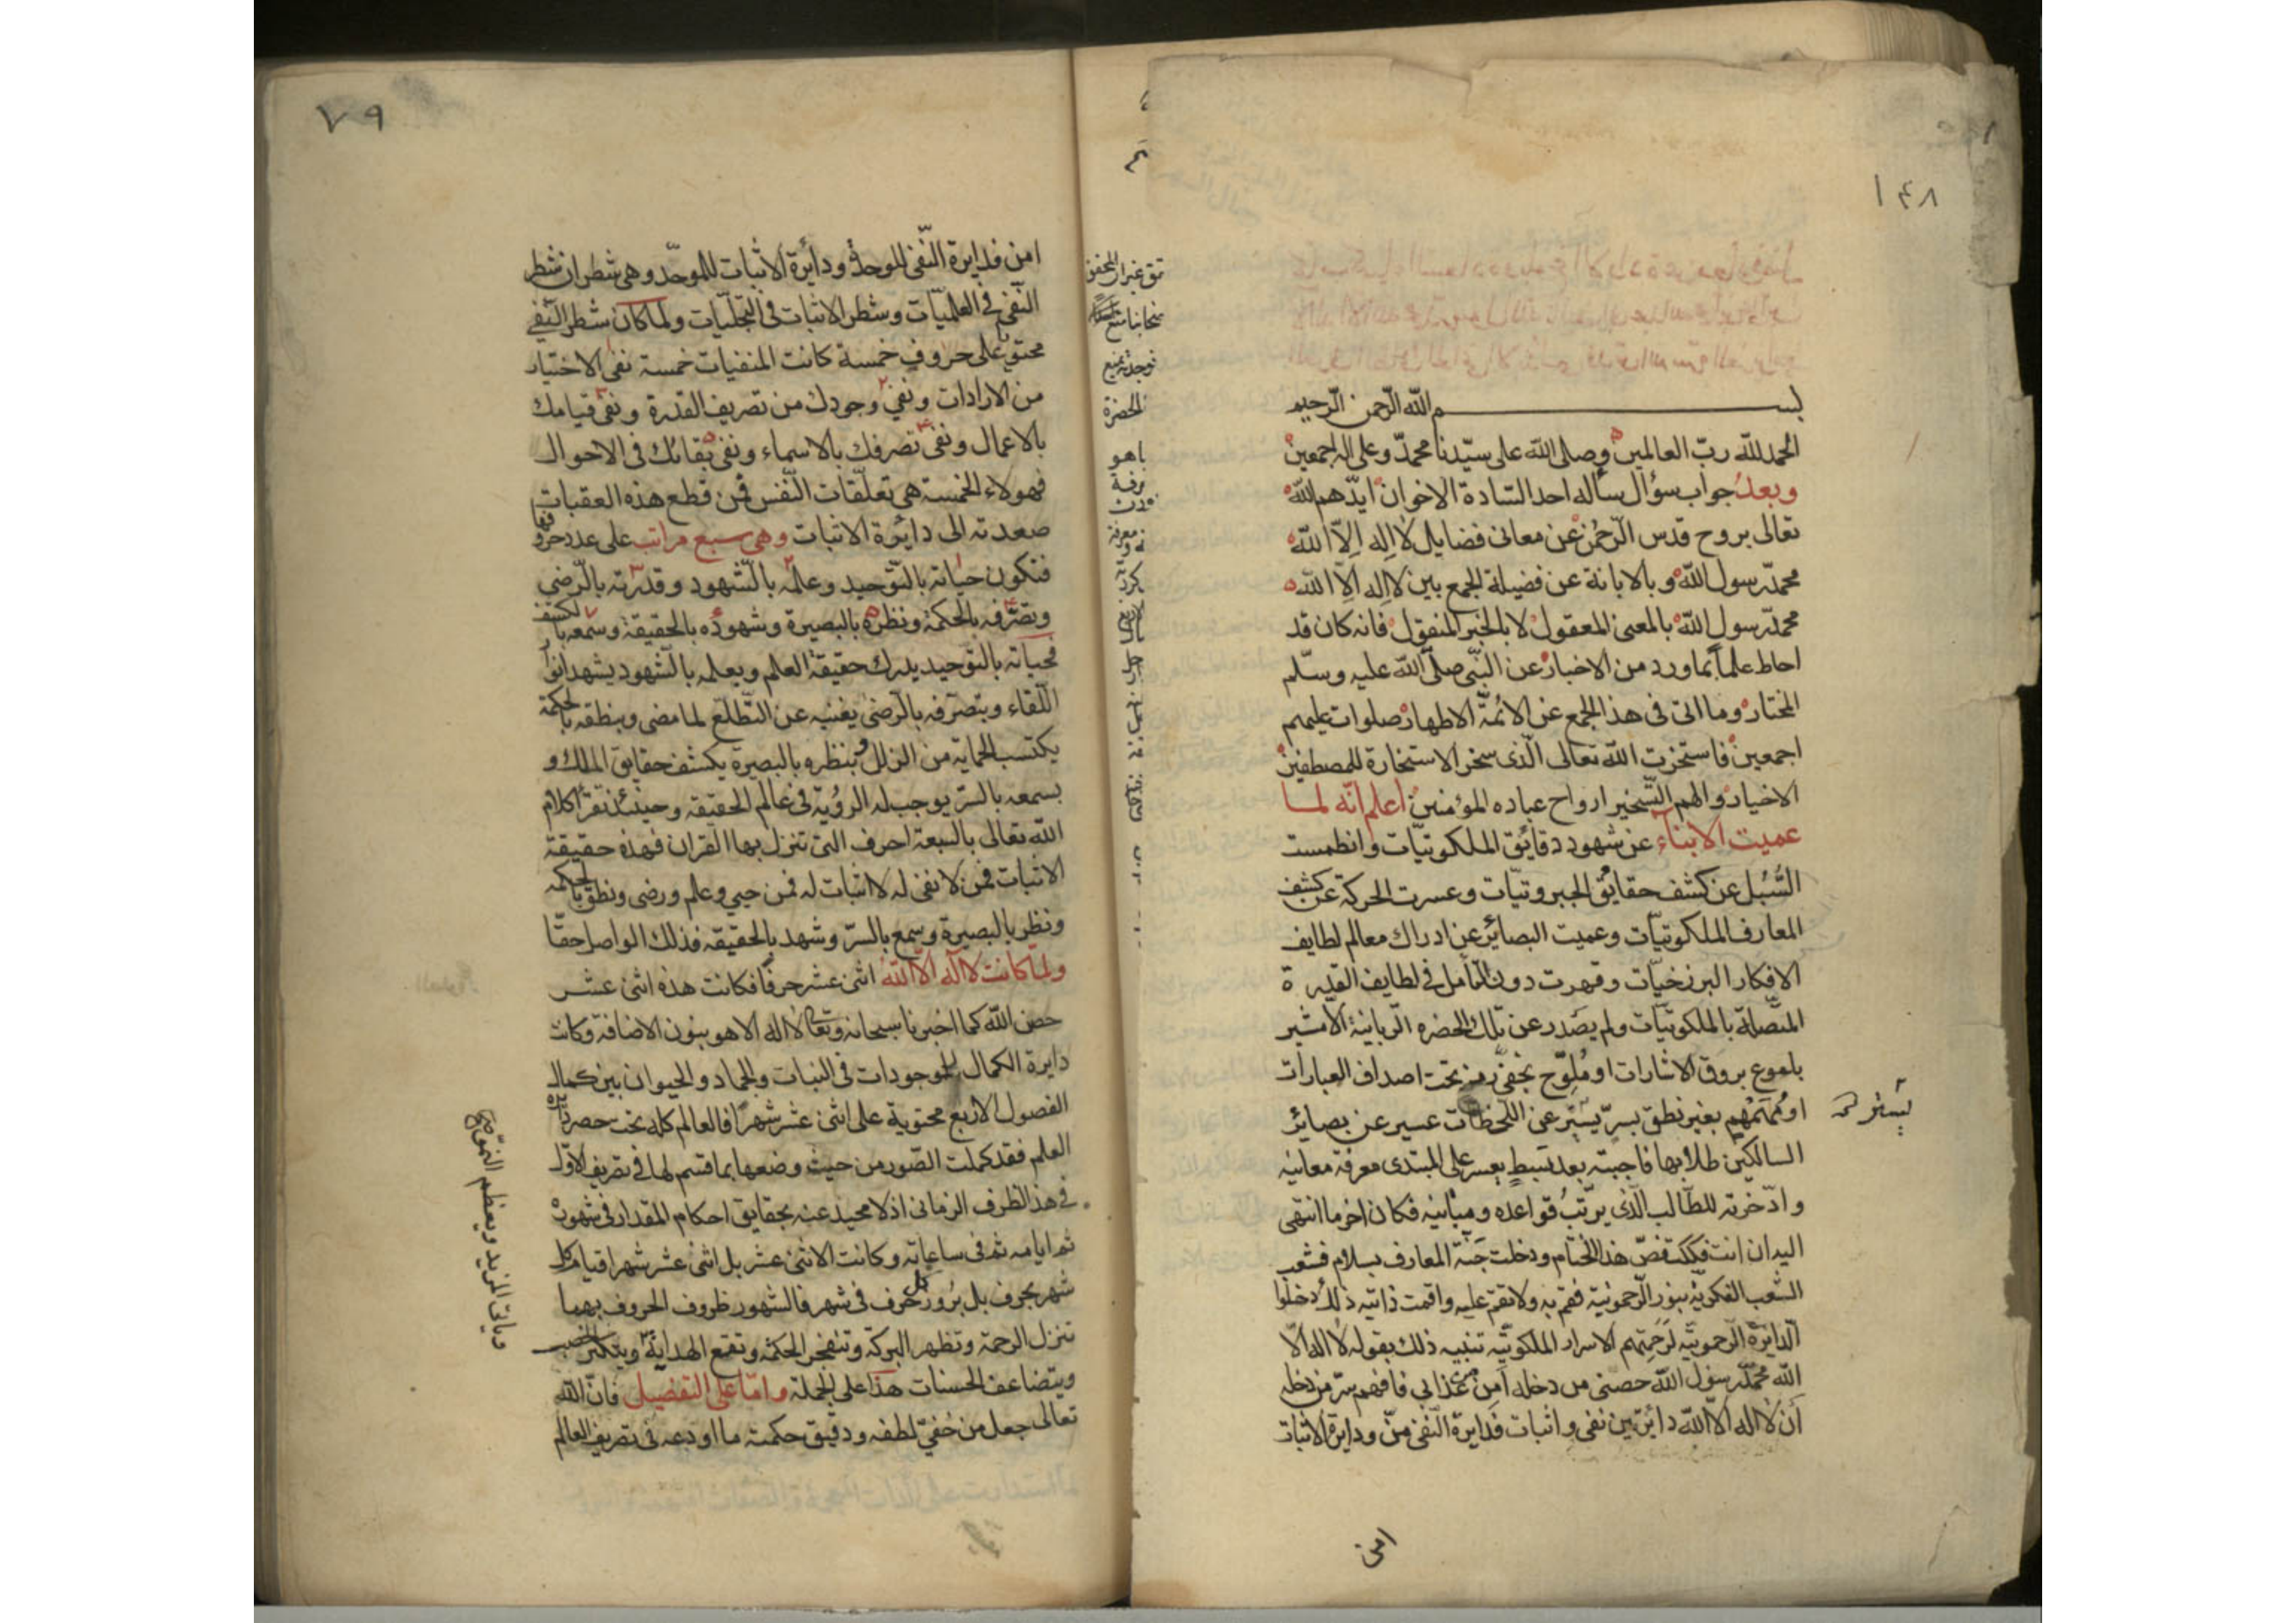 ١٤٨
بسم الله الرحمن الرحيم
الحمد لله ربّ العالمين وصلى الله على سيّدنا محمدّ وعلى اله اجمعين
وبعد جواب سؤال سأله احد السّادة الاخوان ايدّهم الله
تعالى بروح قدس الرّحمن عن معانى فضايل لا اله الّا الله
محمدّ رسول الله وبالابانة عن فضيلة الجمع بين لا اله الّا الله
محمدّ رسول الله بالمعنى المعقول لا بالخبر المنقول فانه كان قد
احاط علماً بما ورد من الاخبار عن النّبى صلّى الله عليه وسلّم
المختار وما اتى فى هذا الجمع عن الائمّة الاطهار صلوات عليهم
اجمعين فاستخرت الله تعالى الّذى سخر الاستخارة للمصطفين
الاخيار والهم التّسخير ارواح عباده المؤمنين اعلم انّه لما
عميت الابناء عن شهود دقايق الملكوتيّات وانطمست
السُّبُل عن كشف حقايق الجبروتيّات وعسرت الحركة عن كشف
المعارف الملكوتيّات وعميت البصائر عن ادراك معالم لطايف
الافكار البرزخيّات وقهرت دون التأمل فى لطايف القدرة
المتّصلة بالملكوتيّات ولم يصدر عن تلك الحضره الرّبانية الّا مشير
بلموع بروق الاشارات او مُلوّح بخفىّ رمز تحت اصداف العبارات
او مُهمهم بغير نطق بسرّ يسيّر عن اللّحظات عسير عن بصائر
السالكين طلابها فاجبته بعد تبسيط يعسر على المبتدى معرفة معانيه
وادّخرته للطّالب الّذى يرتّب قواعده ومبانيه فكان اخر ما انتهى
اليه ان انت فككت فصّ هذا الختام ودخلت جَنّة المعارف بسلام فشعب
الشّعب الفكريّة بنور الرّحمونية فقم به ولا تقم عليه واقمت ذاتيه ذلك دخلوا
الدايرة الرّحموتيّه لرحمتهم الاسرار الملكوتيّه تنبيه ذلك بقوله لا اله الّا
الله محمدّ رسول الله حصنى من دخله امن من عذابى فافهم سرّ من دخله
أن لا اله الّا الله دائرتين نفى واثبات فدايرة النّفى منّ ودايرة الاثبات
امن
٧٩
امن فدايرة النّفى للموحدّ ودائرة الاثبات للموحّد وهى شطران شطر
النّفى فى العلميّات وشطر الاثبات فى التّجلّيات ولما كان شطر النّفى
محتوى على حروف خمسة كانت المنفيات خمسة نفى الاختيار
من الارادات ونفى وجودك من تصريف القدرة ونفى قيامك
بالاعمال ونفى تصرفك بالاسماء ونفى بقائك فى الاحوال
فهولاء الخمسة هى تعلّقات النّفس فمن قطع هذه العقبات
صعدت الى دائرة الاثبات وهى سبع مراتب على عدد حروفها
فتكون حياته بالتّوحيد وعلمه بالشّهود وقدرته بالرّضى
وتصرّفه بالحكمة ونظره بالبصيرة وشهوده بالحقيقة وسمعه بالكشف
فحياته بالتوحيد يدرك حقيقة العلم وبعلمه بالشّهود يشهد انوار
اللّقاء وبتصرّفه بالرّضى يغنيه عن التّطلّع لما مضى وبنطقه بالحكمة
يكتسب الحماية من الزلل وبنظره بالبصيرة يكشف حقايق الملك و
بسمعه بالسرّ يوجب له الرؤية فى عالم الحقيقة وحينئذ تقرأ كلام
الله تعالى بالسبعة احرف التى تنزل بها القران فهذه حقيقة
الاثبات فمن لا نفى له لا اثبات له فمن حيى وعلم ورضى ونطق بالحكمة
ونظر بالبصيرة وسمع بالسرّ وشهد بالحقيقه فذلك الواصل حقّا
ولمّا كانت لا اله الّا الله اثنى عشر حرفاً فكانت هذه اثنى عشر
حصن الله كما اخبرنا سبحانه وتعالى لا اله الا هو بنون الاضافة وكانت
دايرة الكمال للموجودات فى النبات والجماد والحيوان بين كمال
الفصول الاربع محتوية على اثنى عشر شهراً فالعالم كله تحت حصر دائرة
العلم فقد كملت الصّور من حيث وضعها بما قسم لها فى تصريف الاوّل
فى هذا الظرف الزمانى اذ لا محيد عنه بحقايق احكام المقدار فى شهوره
ثم ايامه ثم فى ساعاته وكانت الاثنى عشر بل اثنى عشر شهرا قيام كل
شهر بحرف بل بروز كل حرف فى شهر فالشهور ظروف الحروف بهما
تنزل الرحمة وتظهر البركة وتنفجر الحكمة وتقمع الهداية ويتكثر الخير
ويتضاعف الحسنات هذا على الجملة وامّا على التفصيل فانّ الله
تعالى جعل من خفيّ لطفه ودقيق حكمته ما اودعه فى تصريف العالم